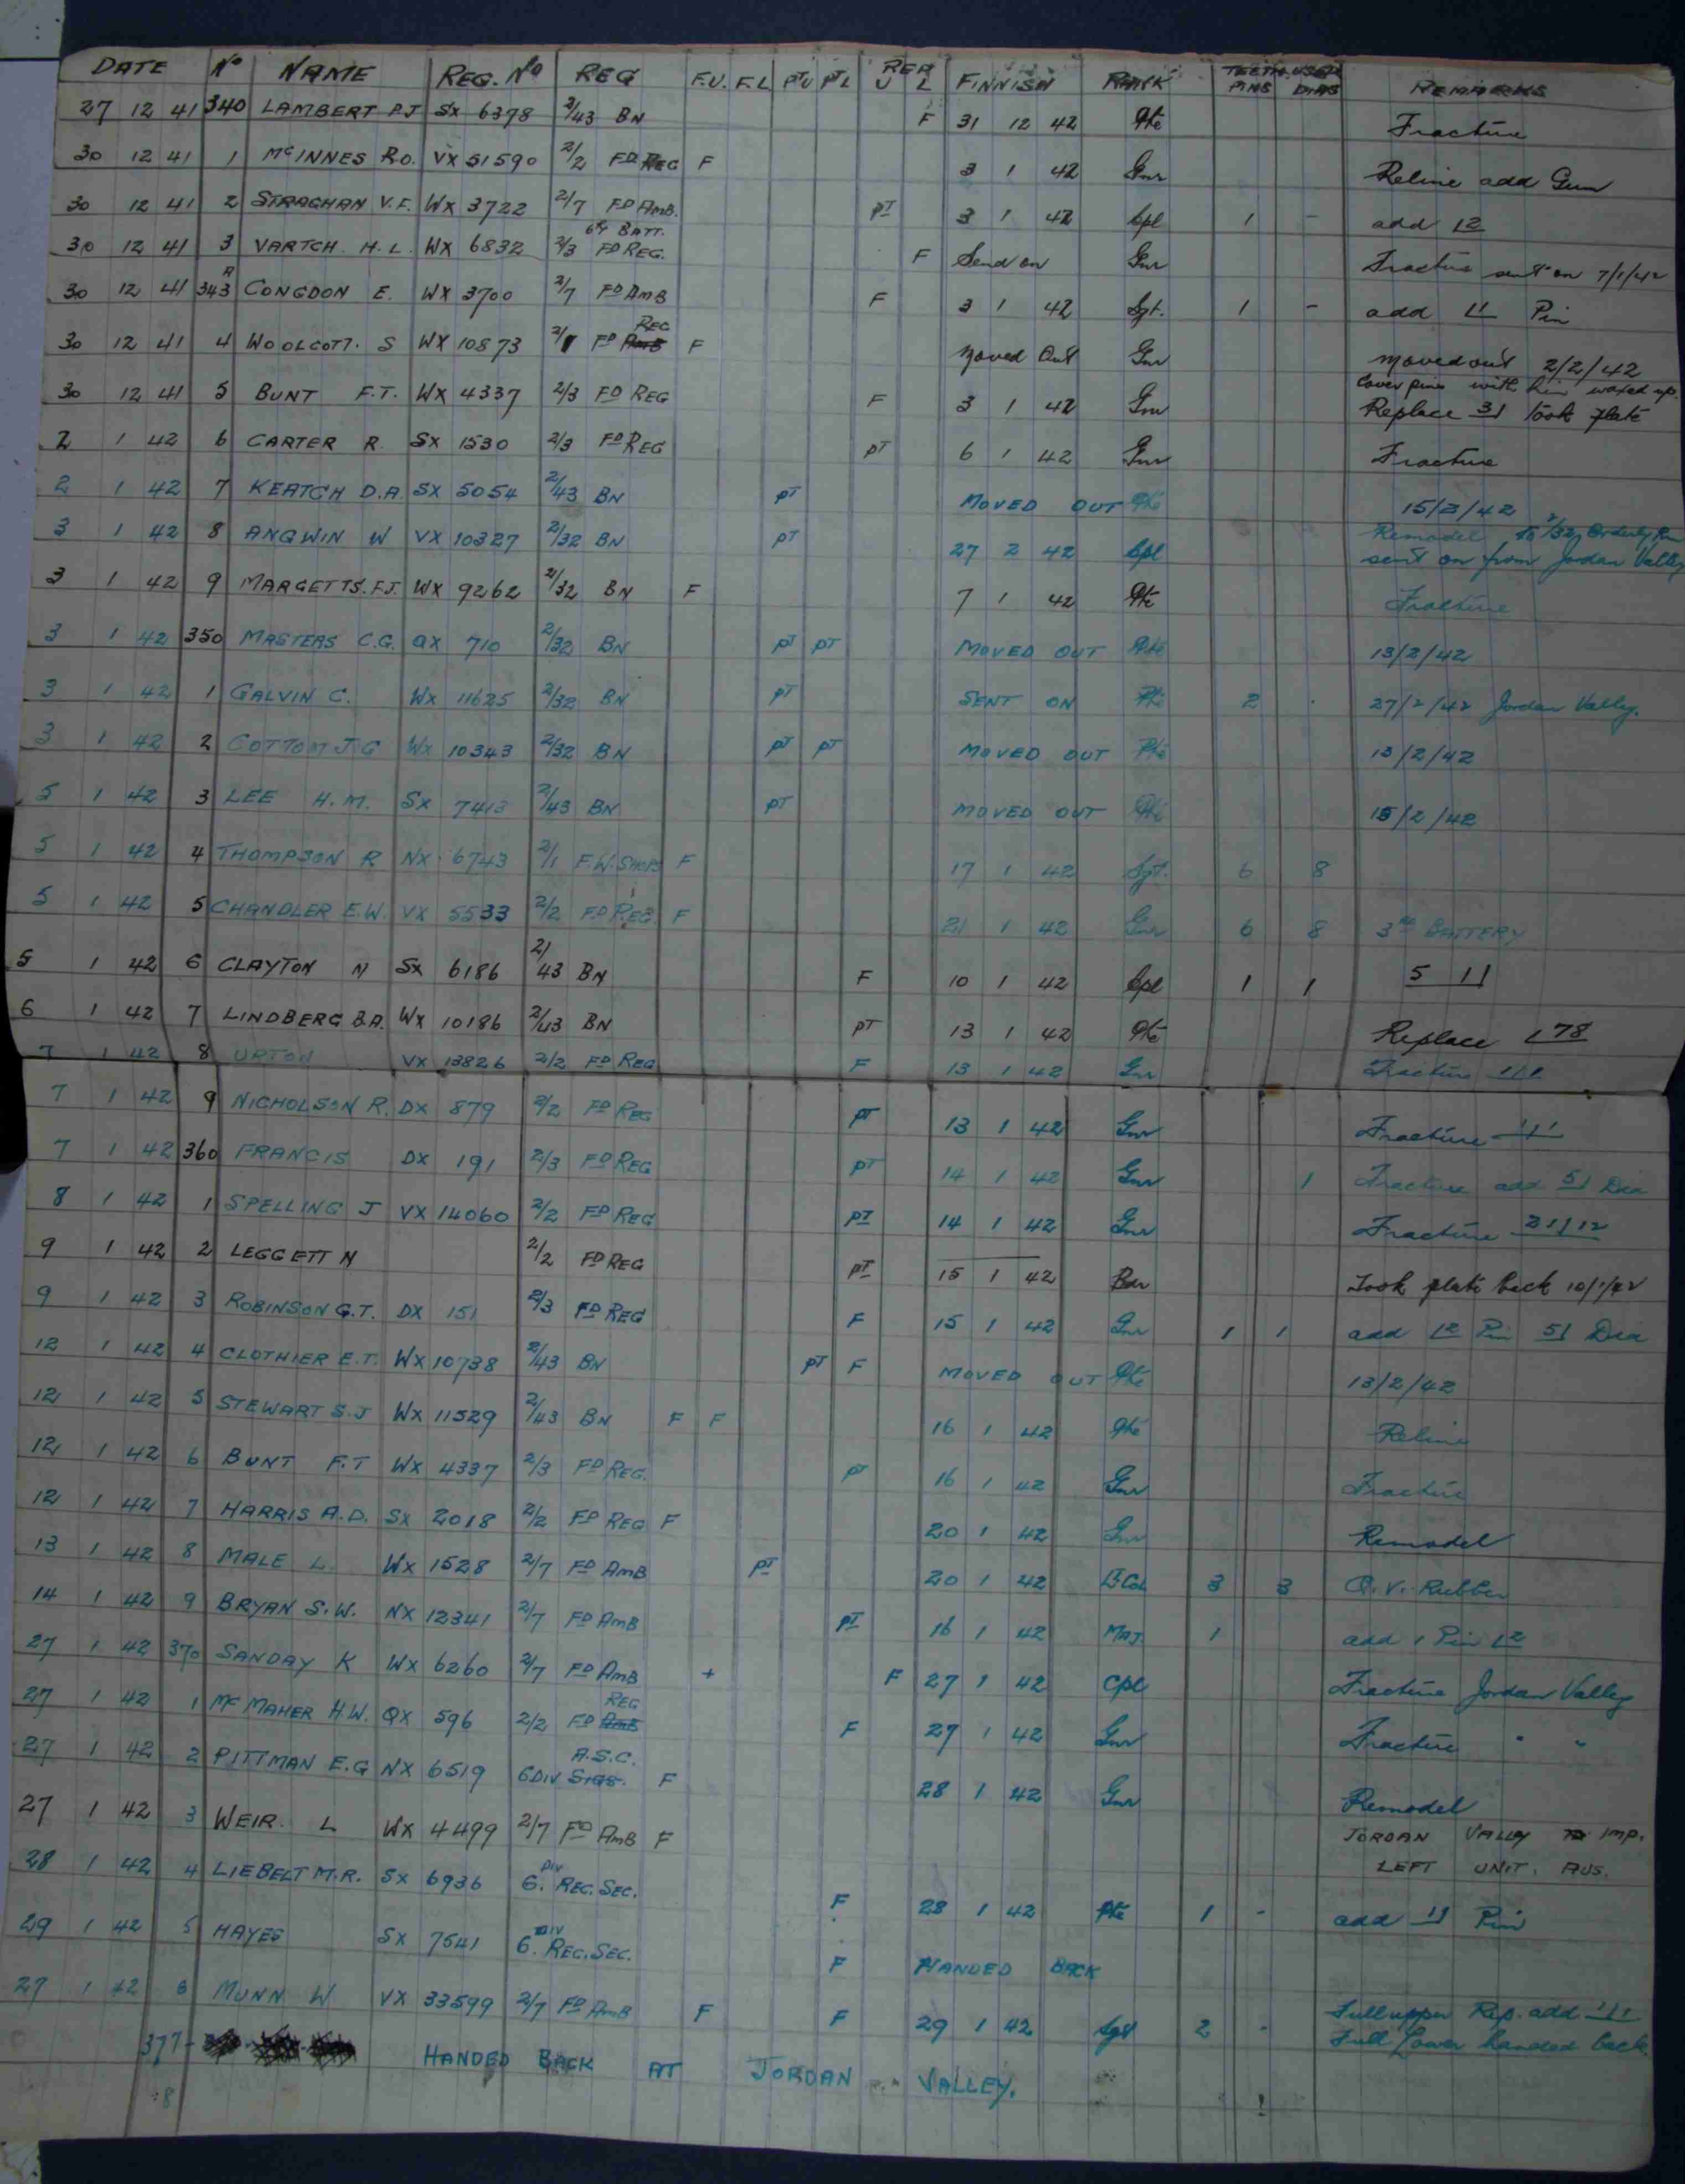 DATE No NAME REG. No REG F.U. F.L PTU PTL REP U L FINNISH RANK TEETH USED PINS DIAS REMARKS
27 12 41 340 LAMBERT P.J SX 6378 2/43 BN F 31 12 42 Pte Fracture
30 12 41 1 McINNES R.O. VX 51590 2/2 FD REG F 3 1 42 Gnr Reline add Gum
30 12 41 2 STRAGHAN V.F. WX 3722 2/7 FD AMB. PT 3 1 42 Cpl 1 - add 12
30 12 41 3 VARTCH. H.L. WX 6832 2/3 FD REG. BATT. F Send on Gnr Fracture sent on 7/1/42
30 12 41 343 A CONGDON E. WX 3700 2/7 FD AMB F 3 1 42 Sgt. 1 - add Pin
30 12 41 4 WOOLCOTT. S WX 10873 FD REG F Moved Out Gnr Moved out 2/2/42
30 12 41 5 BUNT F.T. WX 4337 2/3 FD REG F 3 1 42 Gnr Cover pins with waxed up. Replace 3 took plate
2 1 42 6 CARTER R. SX 1530 2/3 FD REG PT 6 1 42 Gnr Fracture
2 1 42 7 KEATCH D.A SX 5054 2/43 BN PT MOVED OUT Pte 15/2/42
3 1 42 8 ANGWIN W VX 10327 2/32 BN PT 27 2 42 Cpl Remodel to 2/32 Orderly Rm sent on from Jordan Valley
3 1 42 9 MARGETTS. F.J. WX 9262 2/32 BN F 7 1 42 Pte Fracture
3 1 42 350 MASTERS C.G. QX 710 2/32 BN PT PT MOVED OUT Pte 13/2/42
3 1 42 1 GALVIN C. WX 11625 2/32 BN PT SENT ON Pte 2 . 27/2/42 Jordan Valley.
3 1 42 2 COTTOM J G WX 10343 2/32 BN PT PT MOVED OUT Pte 13/2/42
5 1 42 3 LEE H.M. SX 7413 2/43 BN PT MOVED OUT Pte 15/2/42
5 1 42 4 THOMPSON R NX 6743 2/1 F.W. SHOPS F 17 1 42 Sgt. 6 8
5 1 42 5 CHANDLER E.W. VX 5533 2/2 FD REG. F 21 1 42 Gnr 6 8 3RD BATTERY
5 1 42 6 CLAYTON N SX 6186 2/43 BN F 10 1 42 Cpl 1 1 5 1
6 1 42 7 LINDBERG B.A. WX 10186 2/43 BN PT 13 1 42 Pte Replace 78
7 1 42 8 URTON VX 13826 2/2 FD REG F 13 1 42 Gnr Fracture
7 1 42 9 NICHOLSON R. DX 879 2/2 FD REG PT 13 1 42 Gnr Fracture
7 1 42 360 FRANCIS DX 191 2/3 FD REG PT 14 1 42 Gnr 1 Fracture add 5 Dia
8 1 42 1 SPELLING J VX 14060 2/2 FD REG PT 14 1 42 Gnr Fracture 21 12
9 1 42 2 LEGGETT N 2/2 FD REG PT 15 1 42 Bdr Took plate back 10/1/42
9 1 42 3 ROBINSON G.T. DX 151 2/3 FD REG F 15 1 42 Gnr 1 1 add 2 Pin 5 Dia
12 1 42 4 CLOTHIER E.T. WX 10738 2/43 BN PT F MOVED OUT Pte 13/2/42
12 1 42 5 STEWART S.J WX 11529 2/43 BN F F 16 1 42 Pte Reline
12 1 42 6 BUNT F.T WX 4337 2/3 FD REG. PT 16 1 42 Gnr Fracture
12 1 42 7 HARRIS A.D. SX 2018 2/2 FD REG F 20 1 42 Gnr Remodel
13 1 42 8 MALE L. WX 1528 2/7 FD AMB PT 20 1 42 Lt. Col 3 3 Q.V. Rubber
14 1 42 9 BRYAN S.W. NX 12341 2/7 FD AMB PT 16 1 42 MAJ. 1 add 1 Pin 2
27 1 42 370 SANDAY K WX 6260 2/7 FD AMB + F 27 1 42 Cpl Fracture Jordan Valley
27 1 42 1 McMAHER H.W. QX 596 2/2 FD REG F 27 1 42 Gnr Fracture " "
27 1 42 2 PITTMAN E.G NX 6519 6 DIV A.S.C. F 28 1 42 Gnr Remodel
27 1 42 3 WEIR. L WX 4499 2/7 FD AMB F JORDAN VALLEY Imp. LEFT UNIT. AUS.
28 1 42 4 LIEBELT M.R. SX 6936 6. DIV REC. SEC. F 28 1 42 Pte 1 - add Pin
29 1 42 5 HAYES SX 7541 6. DIV REC. SEC. F HANDED BACK
27 1 42 6 MUNN W VX 33599 2/7 FD AMB F F 29 1 42 Sgt 2 - Full upper Rep. add Full Lower handed back
377- HANDED BACK AT JORDAN VALLEY.
8